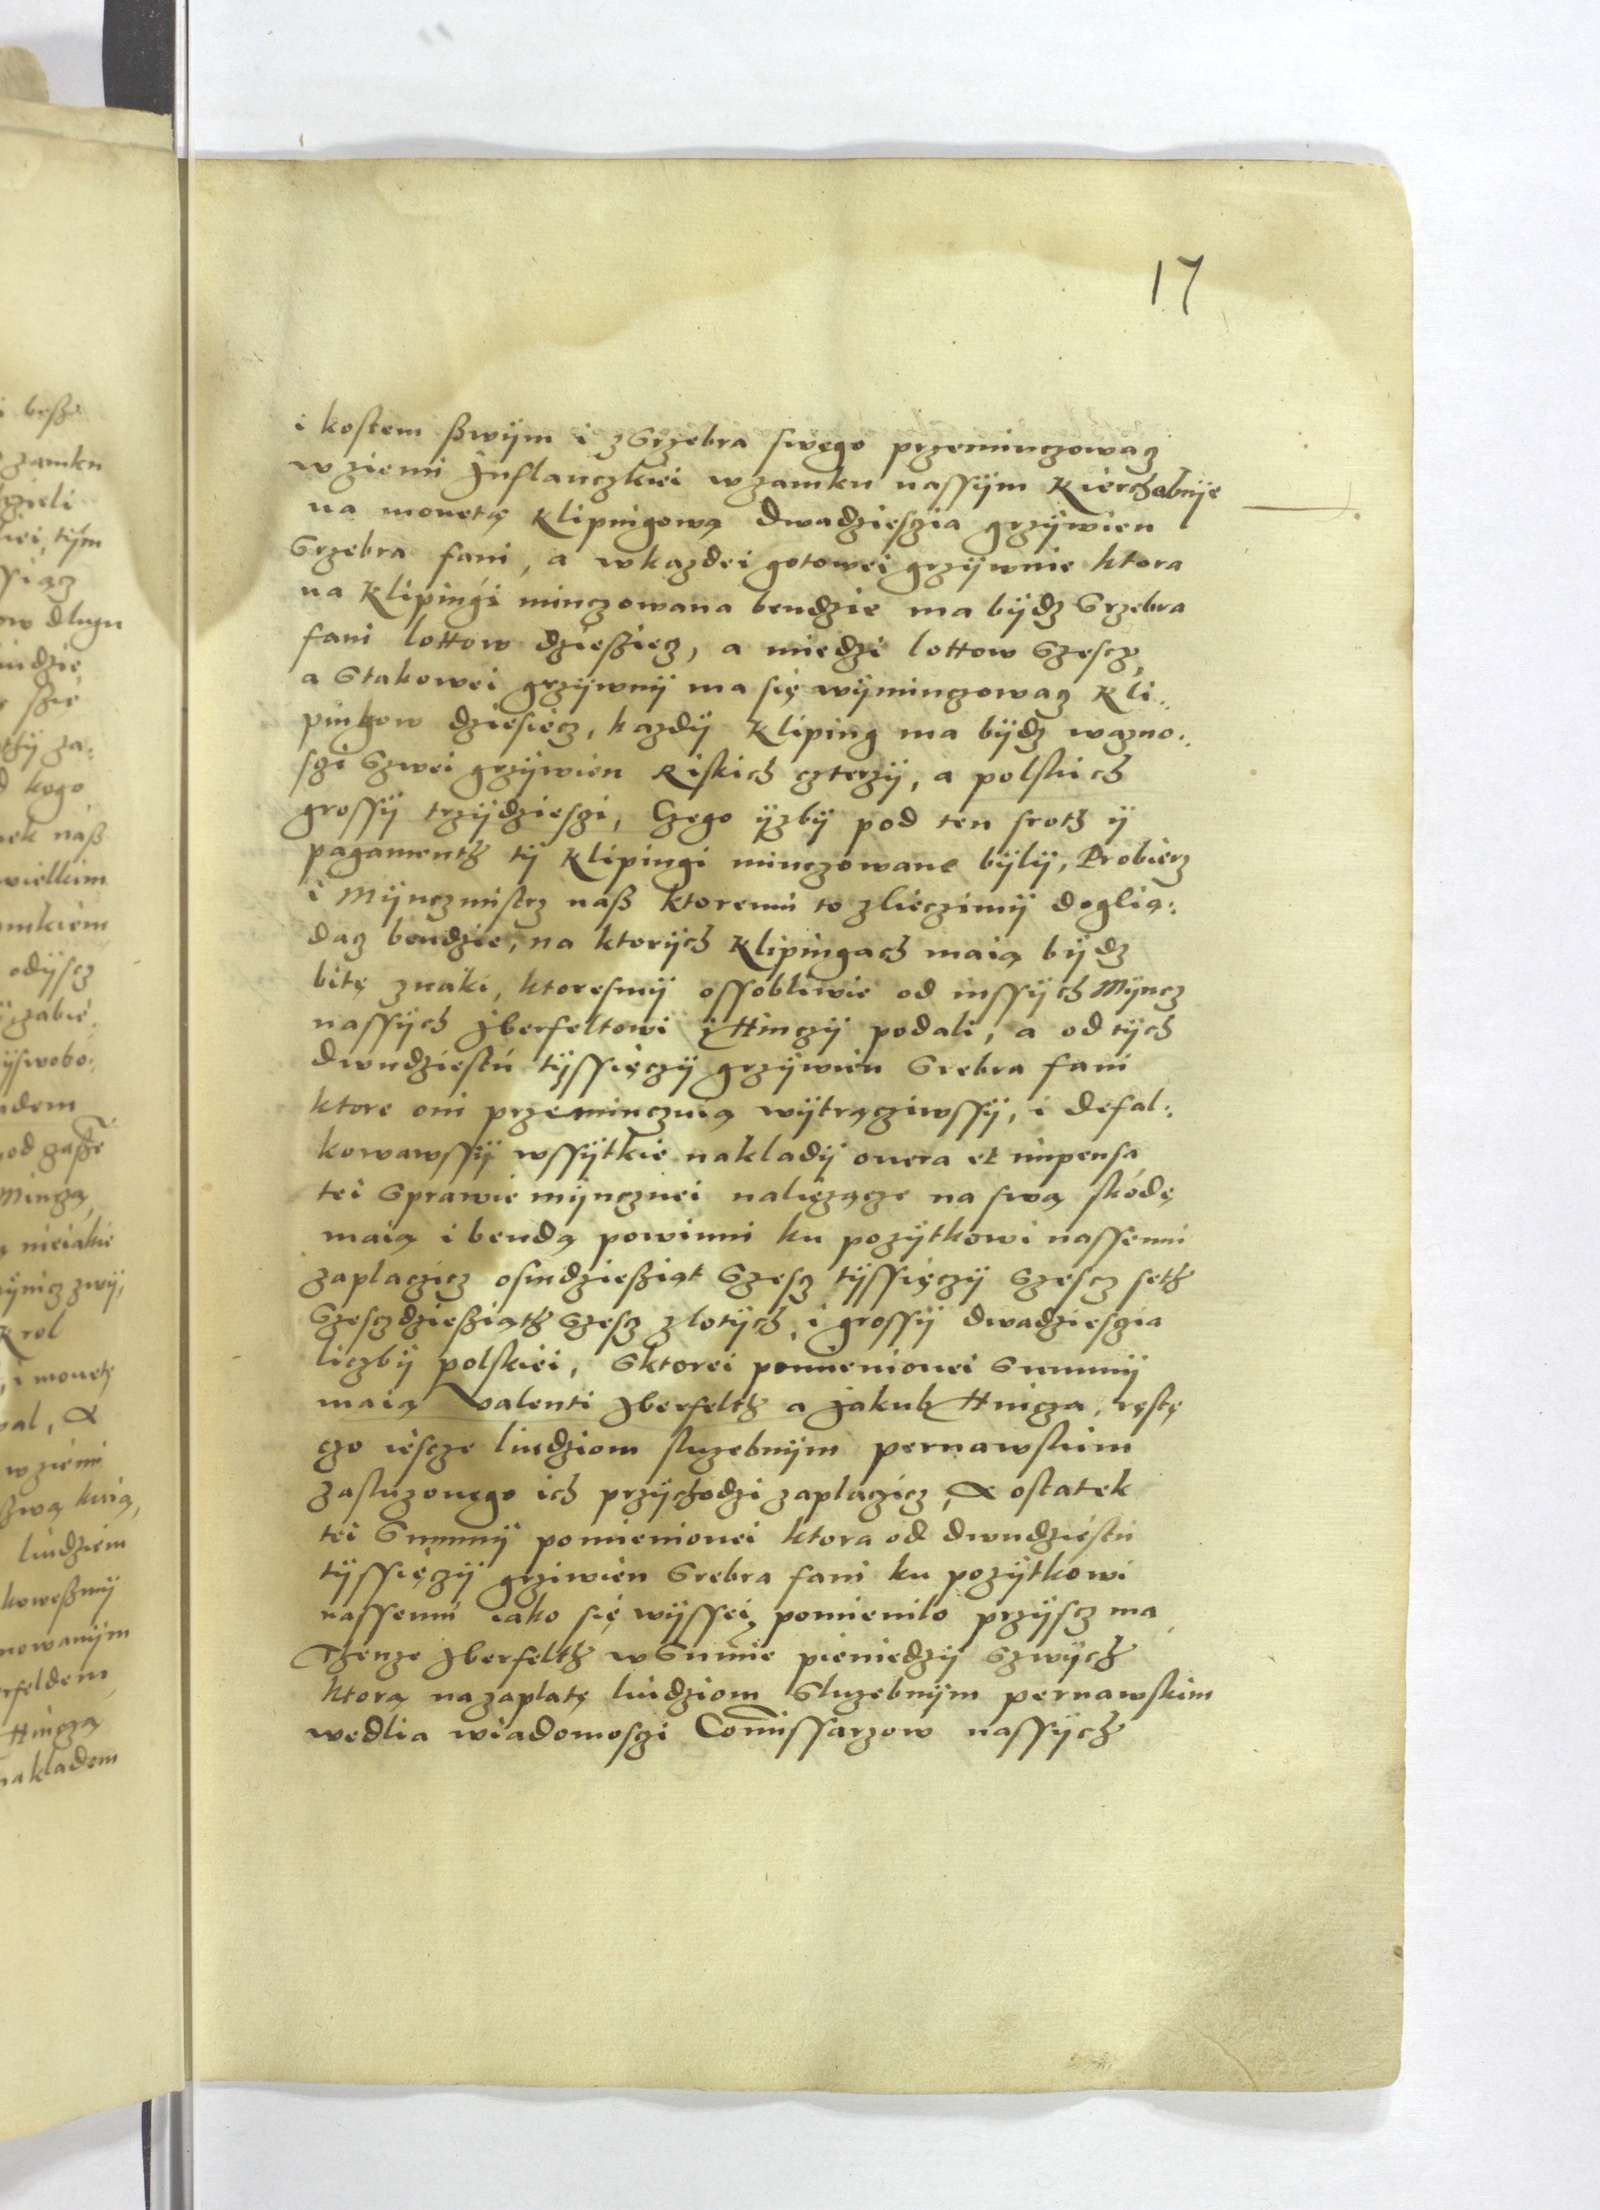 17
i kostem ßwÿm i zsrzebra swego przeminczowacz
w ziemi Jnflanczkiei w zamku nassÿm Kierchobnÿe
na monetę Klipingową dwadziesczia grzÿwien
Srzebra fani, a wkazdei gotowei grzÿwnie ktora
na Klipingi minczowana bendzie ma bÿdz Srzebra
fani lottow dziesziecz, a miedzi lottow szescz,
a stakowei grzÿwnÿ ma się wÿminczowacz Kli:
pinkow dziesiecz, kazdÿ Kliping ma bÿdz wazno:
sczi szwei grzÿwien Riskich czterzÿ, a polskich
grossÿ trzÿdziesczi, Czego ÿzbÿ pod ten sroth ÿ
pagamenth tÿ Klipingi minczowane bÿlÿ, Probierz
i Mÿnczmistrz naß ktoremu to zlieczimÿ doglią:
dacz bendzie, na ktorÿch Klipingach maią bÿdz
bitę znaki, ktoresmÿ ossobliwie od inssÿch Mÿncz
nassÿch Jberfeltowi ÿ Hinczÿ podali, a od tÿch
dwudziestu tÿssięczÿ grzÿwien Srebra fani
ktore oni przeminczuią wÿtrącziwssÿ, i defal:
kowawssÿ wssÿtkie nakladÿ onera et impensa
tei Sprawie mÿncznei nalięzącze na swą skodę
maią i bendą powinni ku pozÿtkowi nassemu
zaplaczicz osmdziesziąt szescz tÿssięczÿ szescz seth
szesczdziesziąth szescz zlotÿch, i grossÿ dwadziesczia
liczbÿ polskiei, Sktorei pomienionei Summÿ
maią Valenti Jberfelth a Jakub Hincza, restę
czo iescze liudziom sluzebnÿm pernawskim
zasluzonego ich przÿchodzi zaplaczicz, & ostatek
tei Summÿ pomienionei ktora od dwudziestu
tÿssięczÿ grziwien Srebra fani ku pozÿtkowi
nassemu iako się wÿssei pomienilo przÿscz ma,
Thenze Jberfelth w Sumie pieniedzÿ szwÿch
ktorą nazaplatę liudziom Sluzebnÿm pernawskim
wedlia wiadomosczi Comissarzow nassÿch